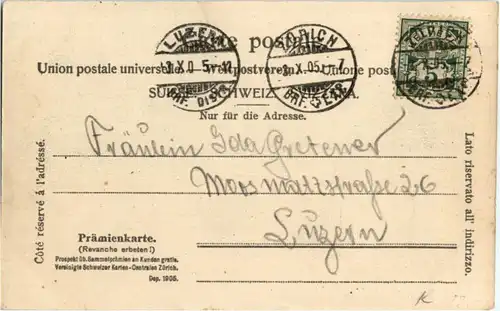 Carte postale.
Union postale universelle. — Weltpostverein. — Unione postale
SUISSE. SCHWEIZ. SVIZZERA.
Nur für die Adresse.
LUZERN
BRF. DIST.
ZÜRICH
3. X. 05. - 7
BRF. EXP.
5
Côté réservé à l'adresse.
Lato riservato all' indirizzo.
Fräulein Ida Gretener
Moosmattstraße 26
Luzern
Prämienkarte.
(Revanche erbeten!)
Prospekt üb. Sammelprämien an Kunden gratis.
Vereinigte Schweizer Karten-Centralen Zürich.
Dep. 1905.
K